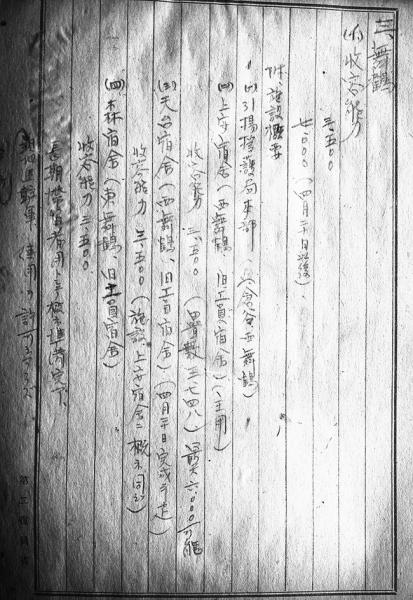 三、舞鶴
(イ)收容能力
三、五〇〇
七、〇〇〇(四月二十日以後)
施設概要
(一)引揚援護局本部(西舞鶴)
(二)上安宿舎(西舞鶴 旧工員宿舎)(主用)
收容力 三、五〇〇(畳数三七四八)最大六、〇〇〇可能
(三)天台宿舎(西舞鶴、旧工員宿舎)(四月二十日完成予定)
收容能力 三、五〇〇(施設、上安宿舎ニ概ネ同ジ)
(四)森宿舎(東舞鶴、旧工員宿舎)
收容能力 三、五〇〇
長期滯留者用トシテ概ネ準備完了、
進駐軍 使用 許可
第二復員省